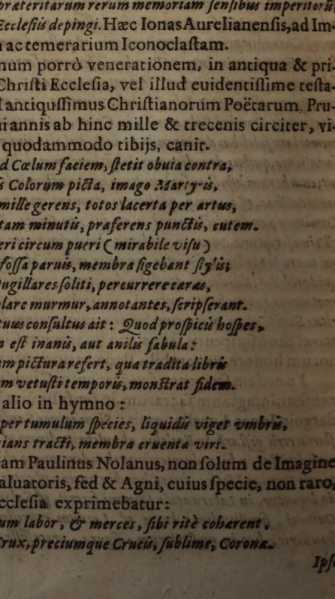 præteritarum rerum memoriam sensibus imperitoru
Ecclesiis depingi. Hæc Ionas Aurelianensis, ad Im-
ac temerarium Iconoclastam.
num porrò venerationem, in antiqua & pri-
Christi Ecclesia, vel illud euidentissime testa-
antiquissimus Christianorum Poëtarum. Pru-
i annis ab hinc mille & trecenis circiter, vi-
quodammodo tibijs, canit.
d Cœlum faciem, stetit obuia contra,
s Colorum picta, imago Martyris,
mille gerens, totos lacerta per artus,
tam minutis, præferens punctis, cutem.
eri circum pueri (mirabile visu)
fossa paruis, membra figebant stylis;
ugillares soliti, percurrere ceras,
lare murmur, annotantes, scripserant.
tuus consultus ait: Quod prospicis hospes,
n est inanis, aut anilis fabula:
em pictura refert, qua tradita libris
m vetusti temporis, monstrat fidem.
alio in hymno:
per tumulum species, liquidis viget vmbris,
ians tracti, membra cruenta viri.
am Paulinus Nolanus, non solum de Imagine
aluatoris, sed & Agni, cuius specie, non raro,
cclesia exprimebatur:
um labor, & merces, sibi ritè cohærent,
rux, preciumque Crucis, sublime, Corona.
Ips